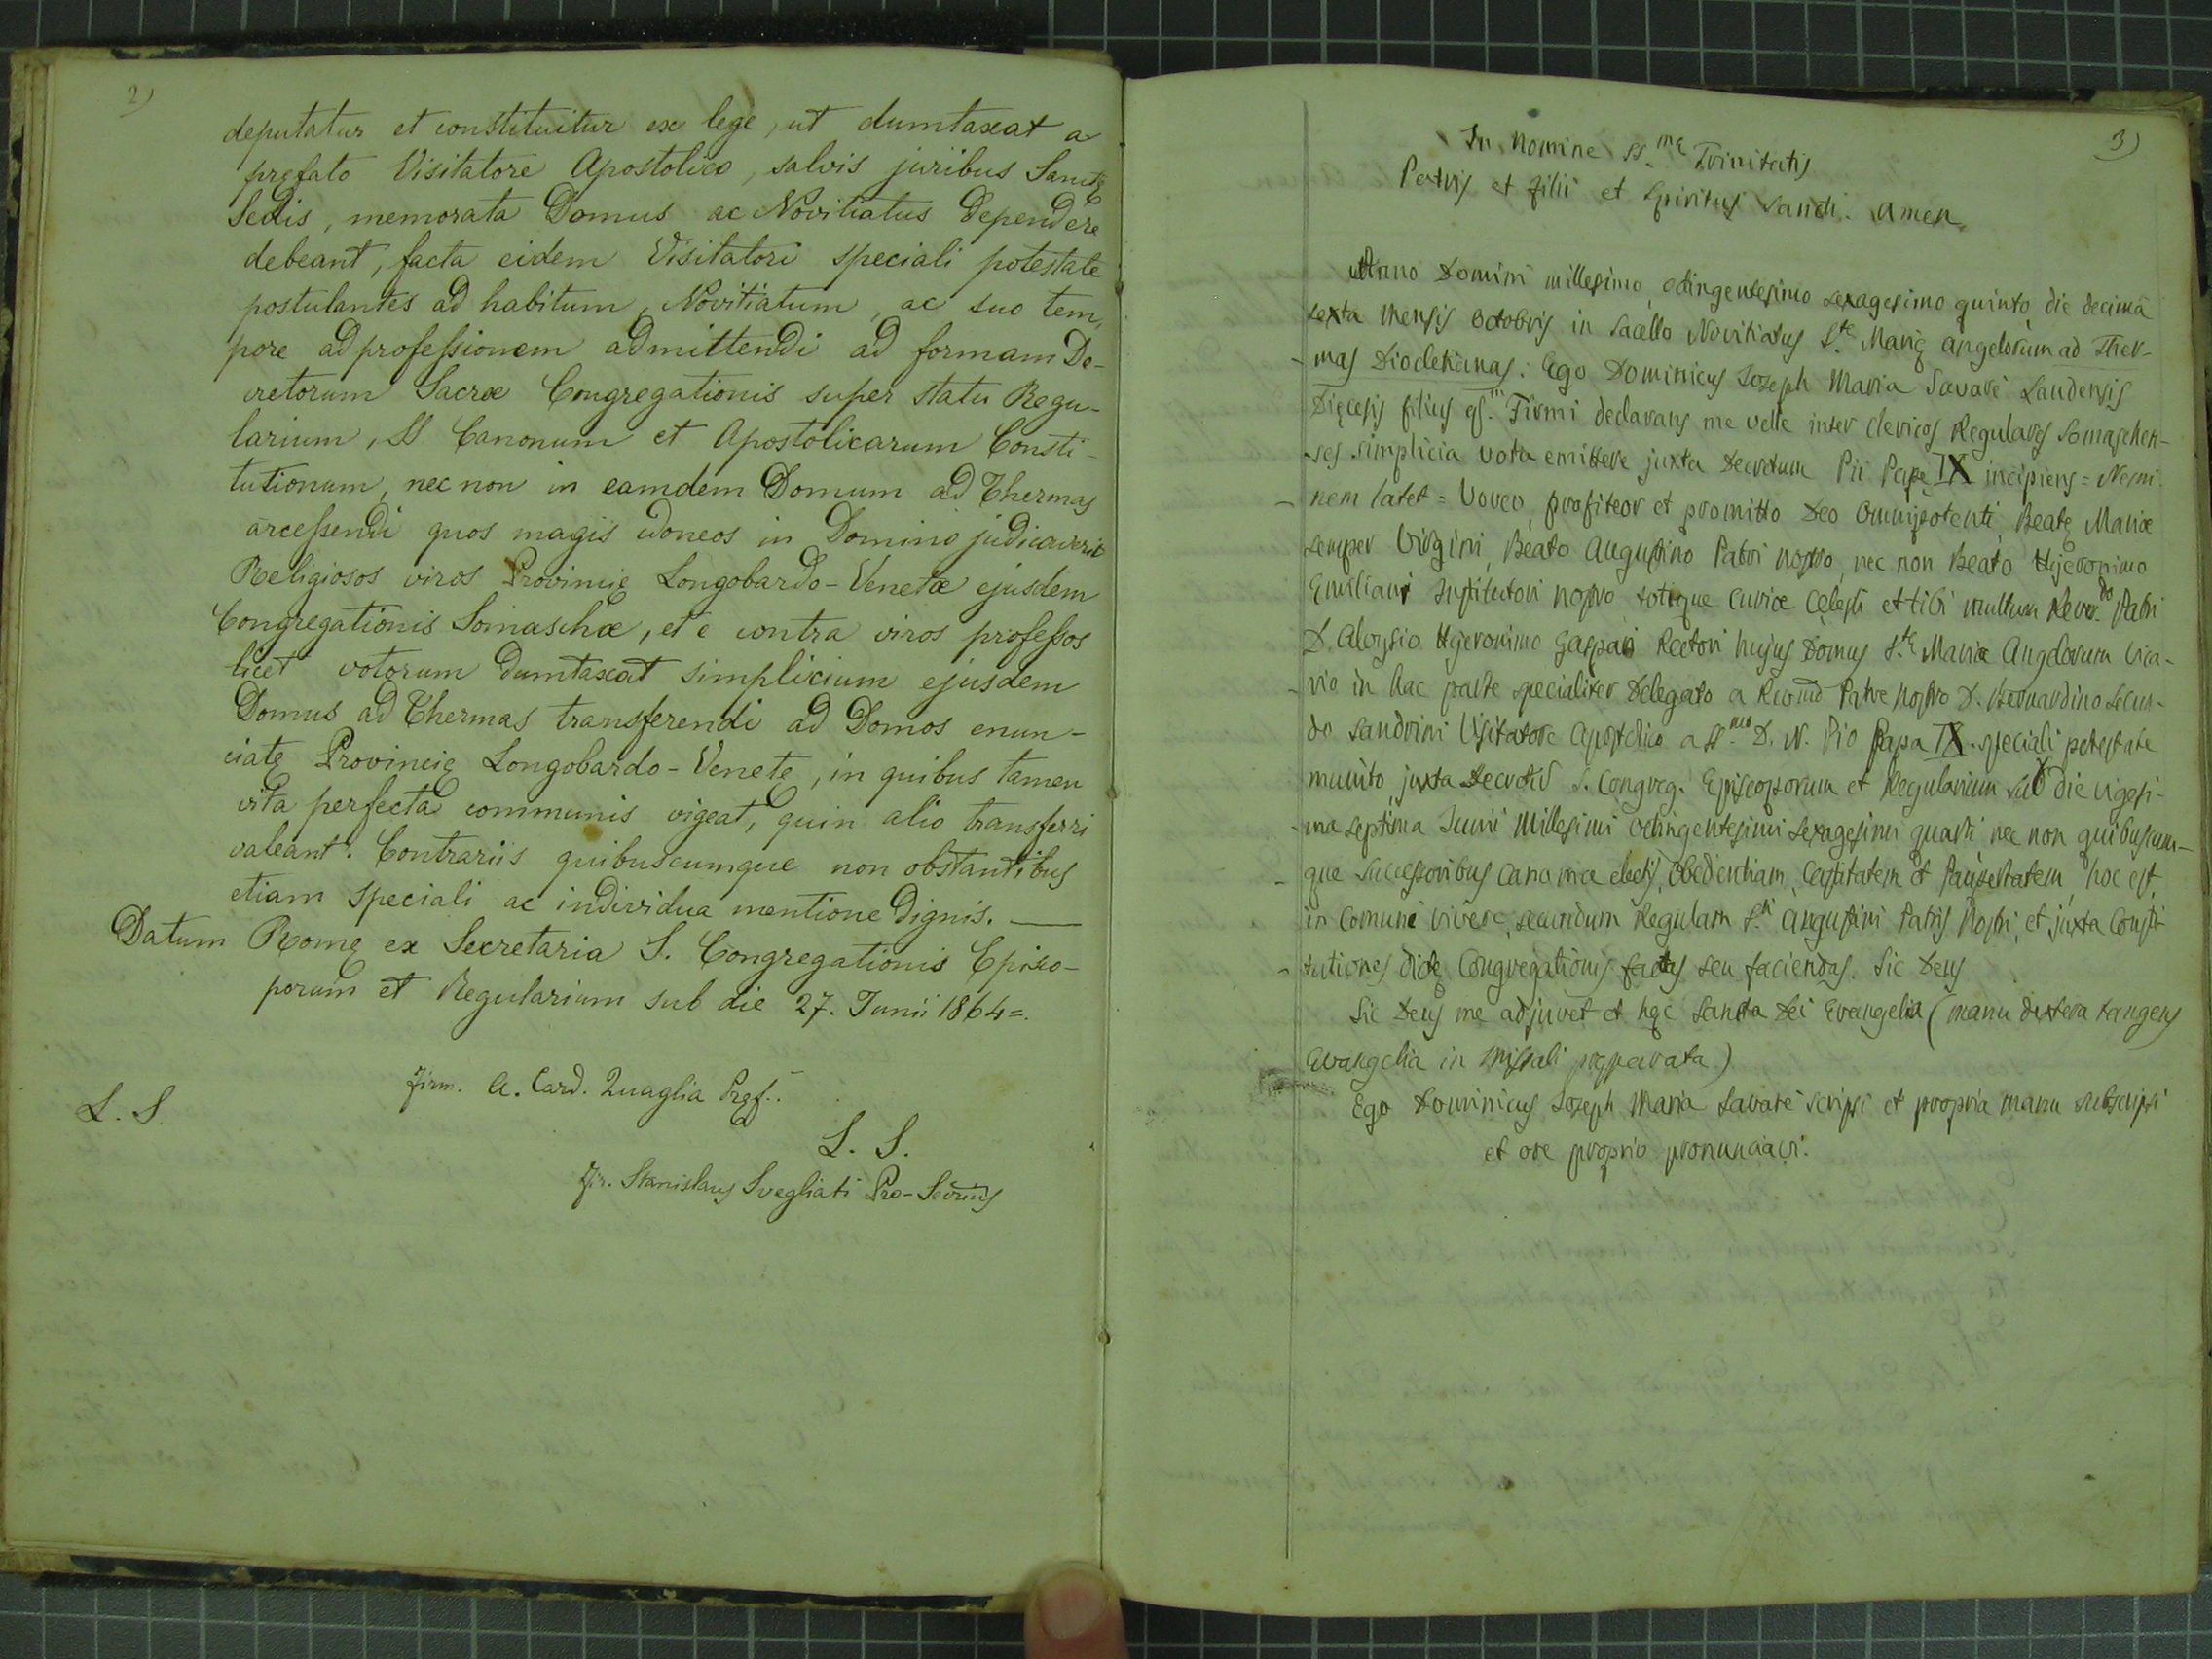 2)
deputatur et constituitur ex lege, ut dumtaxat a
prefato Visitatore Apostolico, salvis juribus Sanctę
Sedis, memorata Domus ac Novitiatus dependere
debeant, facta eidem Visitatori speciali potestate
postulantes ad habitum, Novitiatum, ac suo tem,
pore ad professionem admittendi ad formam De-
cretorum Sacræ Congregationis super statu Regu-
larium, SS Canonum et Apostolicarum Consti-
tutionum, nec non in eamdem Domum ad Thermas
arcessendi quos magis idoneos in Domino judicaverit
Religiosos viros Provincię Longobardo-Venetæ ejusdem
Congregationis Somaschæ, et e contra viros professos
licet votorum dumtaxat simplicium ejusdem
Domus ad Thermas transferendi ad Domos enun-
ciatę Provincię Longobardo-Venete, in quibus tamen
vita perfecta communis vigeat, quin alio transferri
valeant. Contrariis quibuscumque non obstantibus
etiam speciali ac individua mentione dignis. —
Datum Romę ex Secretaria S. Congregationis Episco-
porum et Regularium sub die 27. Junii 1864=.
Firm. A. Card. Quaglia Pręf.
L. S.
L. S.
Fir. Stanislaus Svegliati Pro-Secrius
3)
In Nomine SS.mę Trinitatis
Patris et Filii et Spiritus Sancti. Amen.
Anno Domini millesimo octingentesimo sexagesimo quinto, die decima
sexta Mensis Octobris in Sacello Novitiatus S.tę Marię Angelorum ad Ther-
mas Diocletianas: Ego Dominicus Joseph Maria Savarè Laudensis
Dięcesis filius qf.m Firmi declarans me velle inter Clericos Regulares Somaschen-
ses simplicia vota emittere juxta Decretum Pii Papę IX incipiens = Nemi
nem latet = Voveo, profiteor et promitto Deo Omnipotenti, Beatę Mariæ
semper Virgini, Beato Augustino Patri nostro, nec non Beato Hyeronimo
Emiliani Institutori nostro totique Curiæ Cęlesti et tibi multum Rever.do Patri
D. Aloysio Hyeronimo Gaspari Rectori hujus Domus S.tę Mariæ Angelorum Vica-
rio in hac parte specialiter Delegato a Rvmo Patre Nostro D. Bernardino Secun-
do Sandrini Visitatore Apostolico a SS.mo D. N. Pio Papa IX. speciali potestate
munito juxta Decretũ S. Congreg. Episcoporum et Regularium sub die vigesi-
ma septima Junii Millesimi octingentesimi sexagesimi quarti nec non quibuscum-
que Successoribus Canonice electis, Obedientiam, Castitatem et Paupertatem, hoc est,
in Comuni vivere, secundum Regulam S.ti Augustini Patris Nostri, et juxta Consti-
tutiones dictę Congregationis factas seu faciendas. Sic Deus
Sic Deus me adjuvet et hęc Sancta Dei Evangelia (manu dextera tangens
Evangelia in Missali pręparata.)
Ego Dominicus Joseph Maria Savarè scripsi et propria manu subscripsi
et ore proprio pronunciavi.